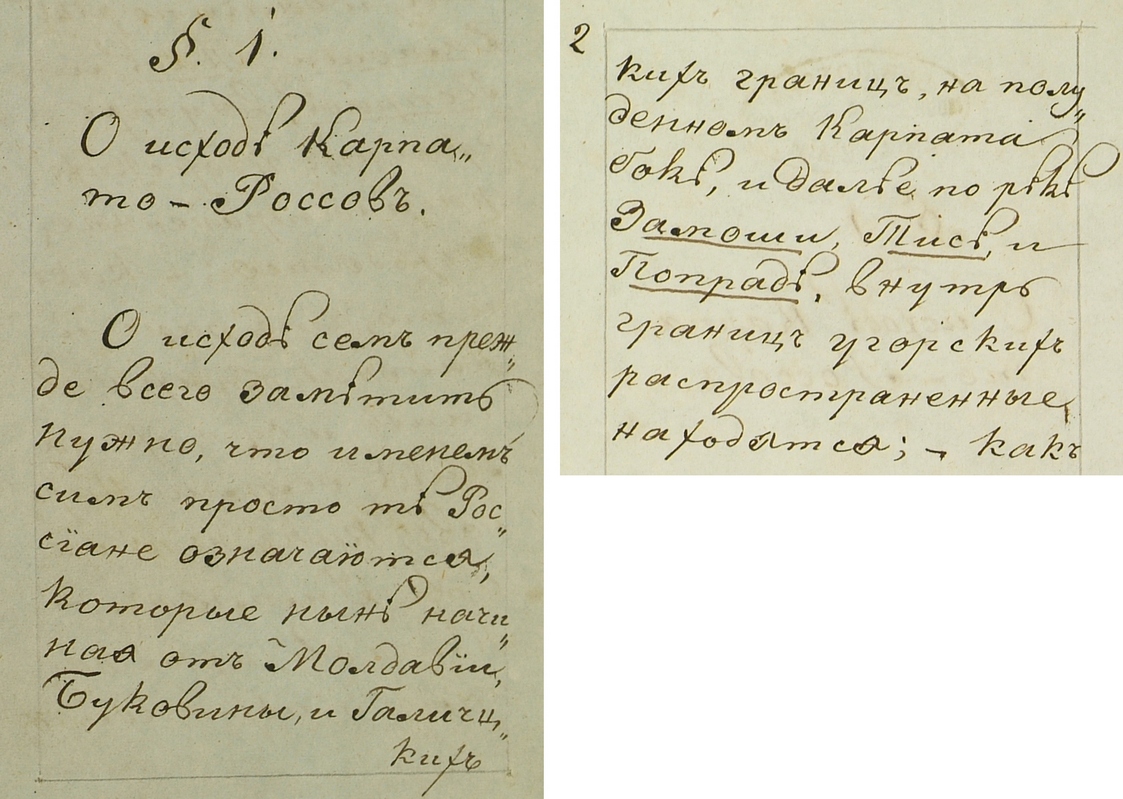 §. 1.
О исходѣ Карпа„
то – Россовъ.
О исходѣ семъ преж„
де всего замѣтить
нужно, что именемъ
симъ просто тѣ Рос„
сїане означаются,
которые нынѣ начи„
ная отъ Молдавїи,
Буковины, и Галичц„
кихъ
2
кихъ границъ, на полу„
денномъ Карпата
бокѣ, и далѣе по рѣкѣ
Замоши, Тисѣ, и
Попрадѣ, внутрь
границъ угорскихъ
распространенные
находятся; – какъ